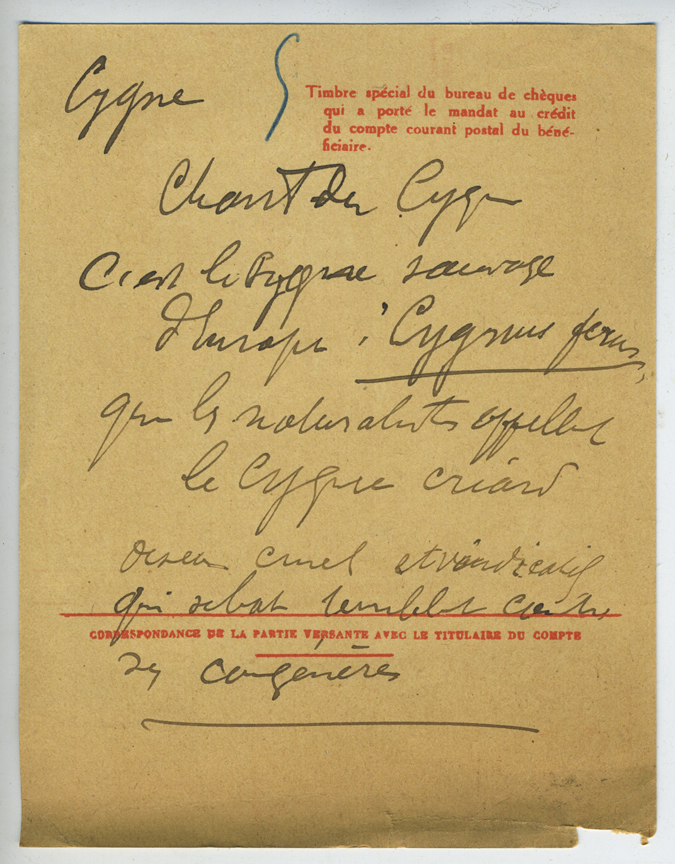 Cygne
Timbre spécial du bureau de chèques
qui a porté le mandat au crédit
du compte courant postal du béné-
ficiaire.
Chant du Cygne
C'est le Cygne sauvage
d'Europe, Cygnus ferus,
que les naturalistes appellent
le Cygne criard
oiseau cruel et vindicatif
qui se bat terriblement contre
CORRESPONDANCE DE LA PARTIE VERSANTE AVEC LE TITULAIRE DU COMPTE
ses congénères